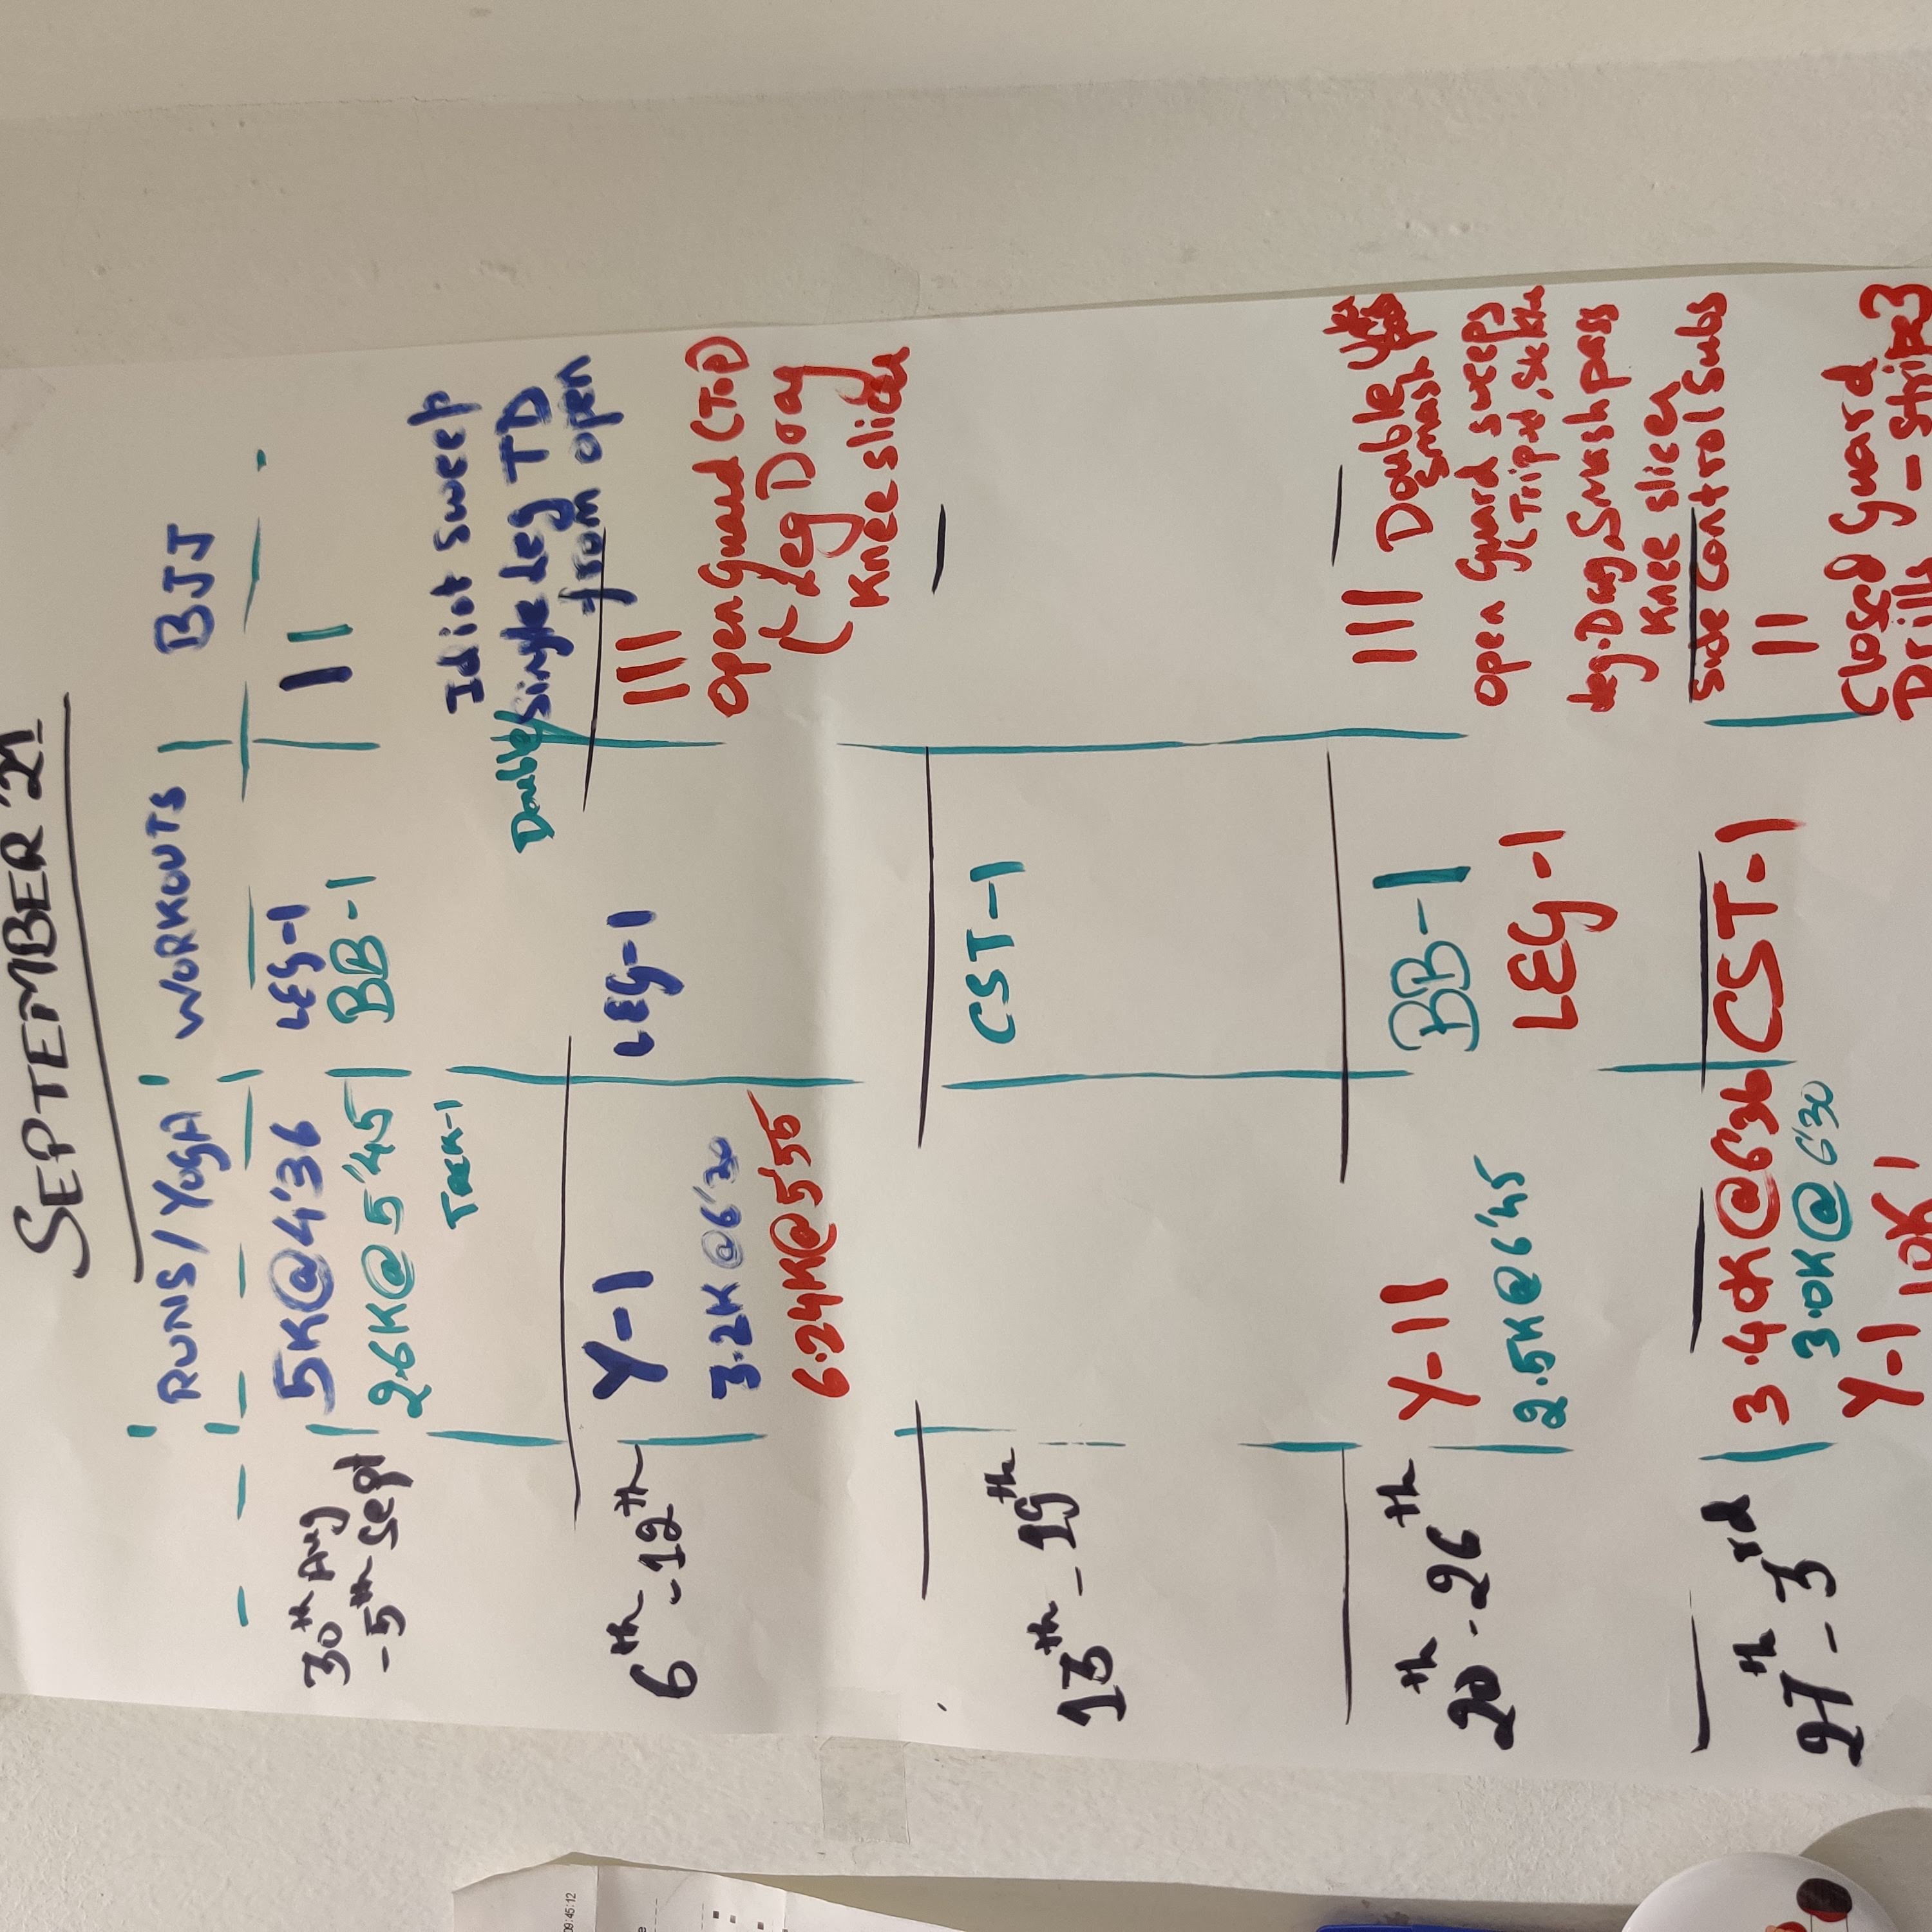 SEPTEMBER '21
RUNS/YOGA WORKOUTS BJJ
30th Aug
-5th Sept
5K@4'36
2.6K@5'45
TREK-1
LEG-1
BB-1
II
Idiot Sweep
Double/Single Leg TD
from open
6th-12th
Y-1
3.2K@6'30
6.24K@5'55
LEG-1
III
Open Guard (Top)
(Leg Drag
Knee slicer
13th-19th
CST-1
20th-26th
Y-11
2.5K@6'45
BB-1
LEG-1
III Double Under
Smash pass
Open Guard sweeps
(Tripod,
Leg.Drag, Smash pass
Knee slicer
Side Control Subs
27th-3rd
3.40K@6'36
3.0K@6'30
Y-1 10K1
CST-1
II
Closed Guard
Drills - Stripe 3
09:45:12